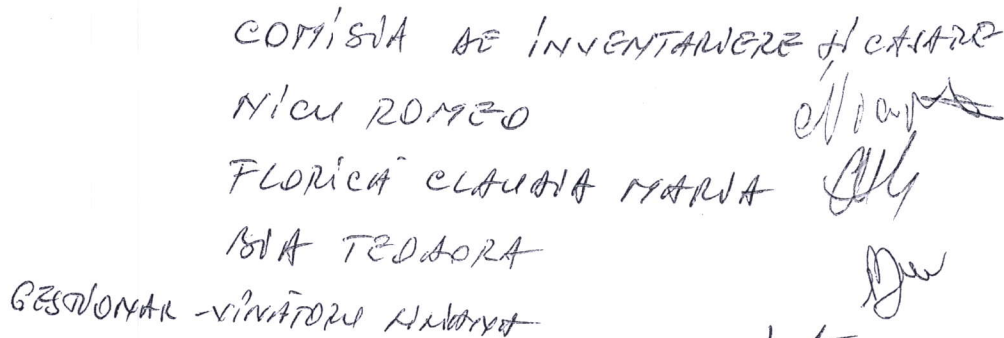 COMISIA DE INVENTARIERE ȘI CASARE
NICU ROMEO
FLORICĂ CLAUDIA MARIA
BÎA TEODORA
GESTIONAR - VÎNĂTORU